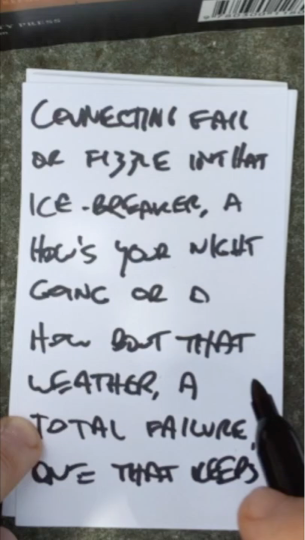 EY PRESS
CONNECTING FAIL
OR FIZZLE IN THAT
ICE-BREAKER, A
HOW'S YOUR NIGHT
GOING OR A
HOW BOUT THAT
WEATHER, A
TOTAL FAILURE,
ONE THAT KEEPS